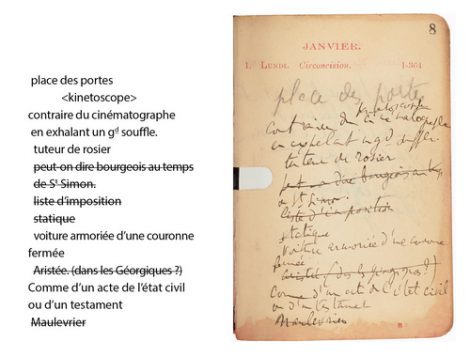 place des portes
<kinetoscope>
contraire du cinématographe
en exhalant un gd souffle.
tuteur de rosier
peut-on dire bourgeois au temps
de St Simon.
liste d'imposition
statique
voiture armoriée d'une couronne
fermée
Aristée. (dans les Géorgiques ?)
Comme d'un acte de l'état civil
ou d'un testament
Maulevrier
8
JANVIER.
1. LUNDI. Circoncision. 1-364
place des portes
kinetoscope
contraire du cinématographe
en exhalant un gd souffle.
tuteur de rosier
peut-on dire bourgeois au temps
de St Simon.
liste d'imposition
statique
voiture armoriée d'une couronne
fermée
Aristée (dans les Géorgiques ?)
Comme d'un acte de l'état civil
ou d'un testament
Maulevrier